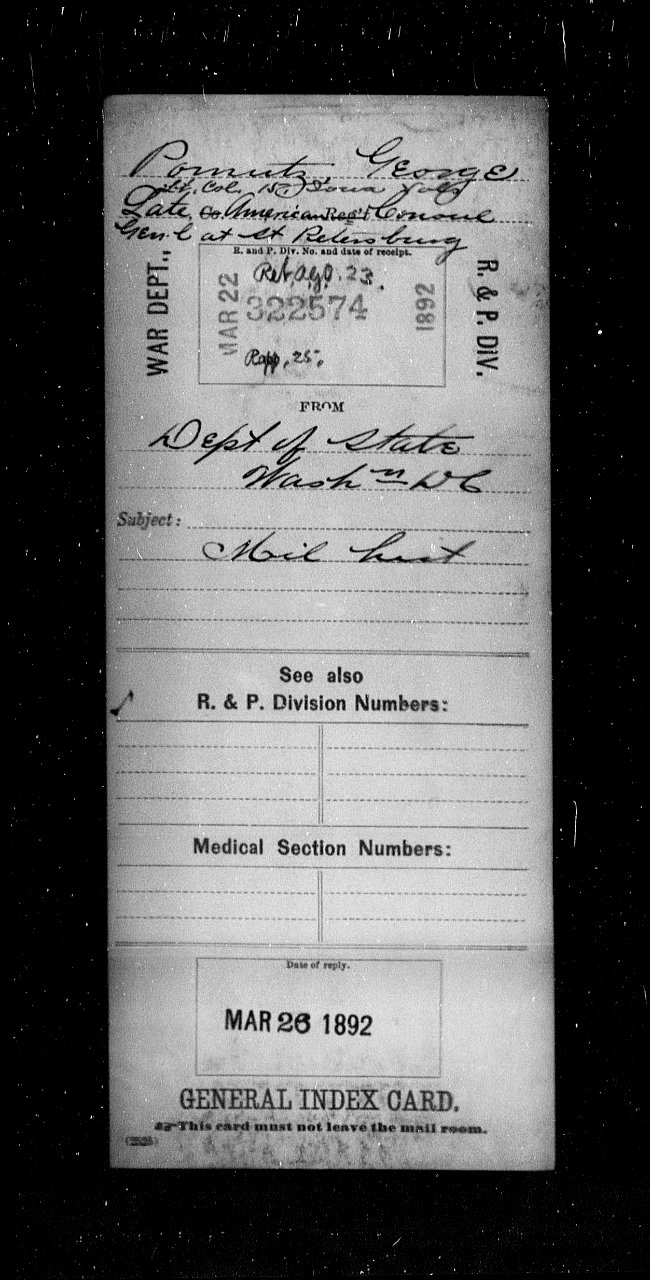 Pomutz, George
Lt. Col. 15" Iowa Vols
Late Co. American Reg't Consul
Gen'l at St Petersburg
R. and P. Div. No. and date of receipt.
WAR DEPT.,
MAR 22
Ret. A.G.O. 23.
322574
Rapp. 25.
1892
R. & P. DIV.
FROM
Dept of State
Wash'n D C
Subject:
Mil hist
See also
R. & P. Division Numbers:
Medical Section Numbers:
Date of reply.
MAR 26 1892
GENERAL INDEX CARD.
☞This card must not leave the mail room.